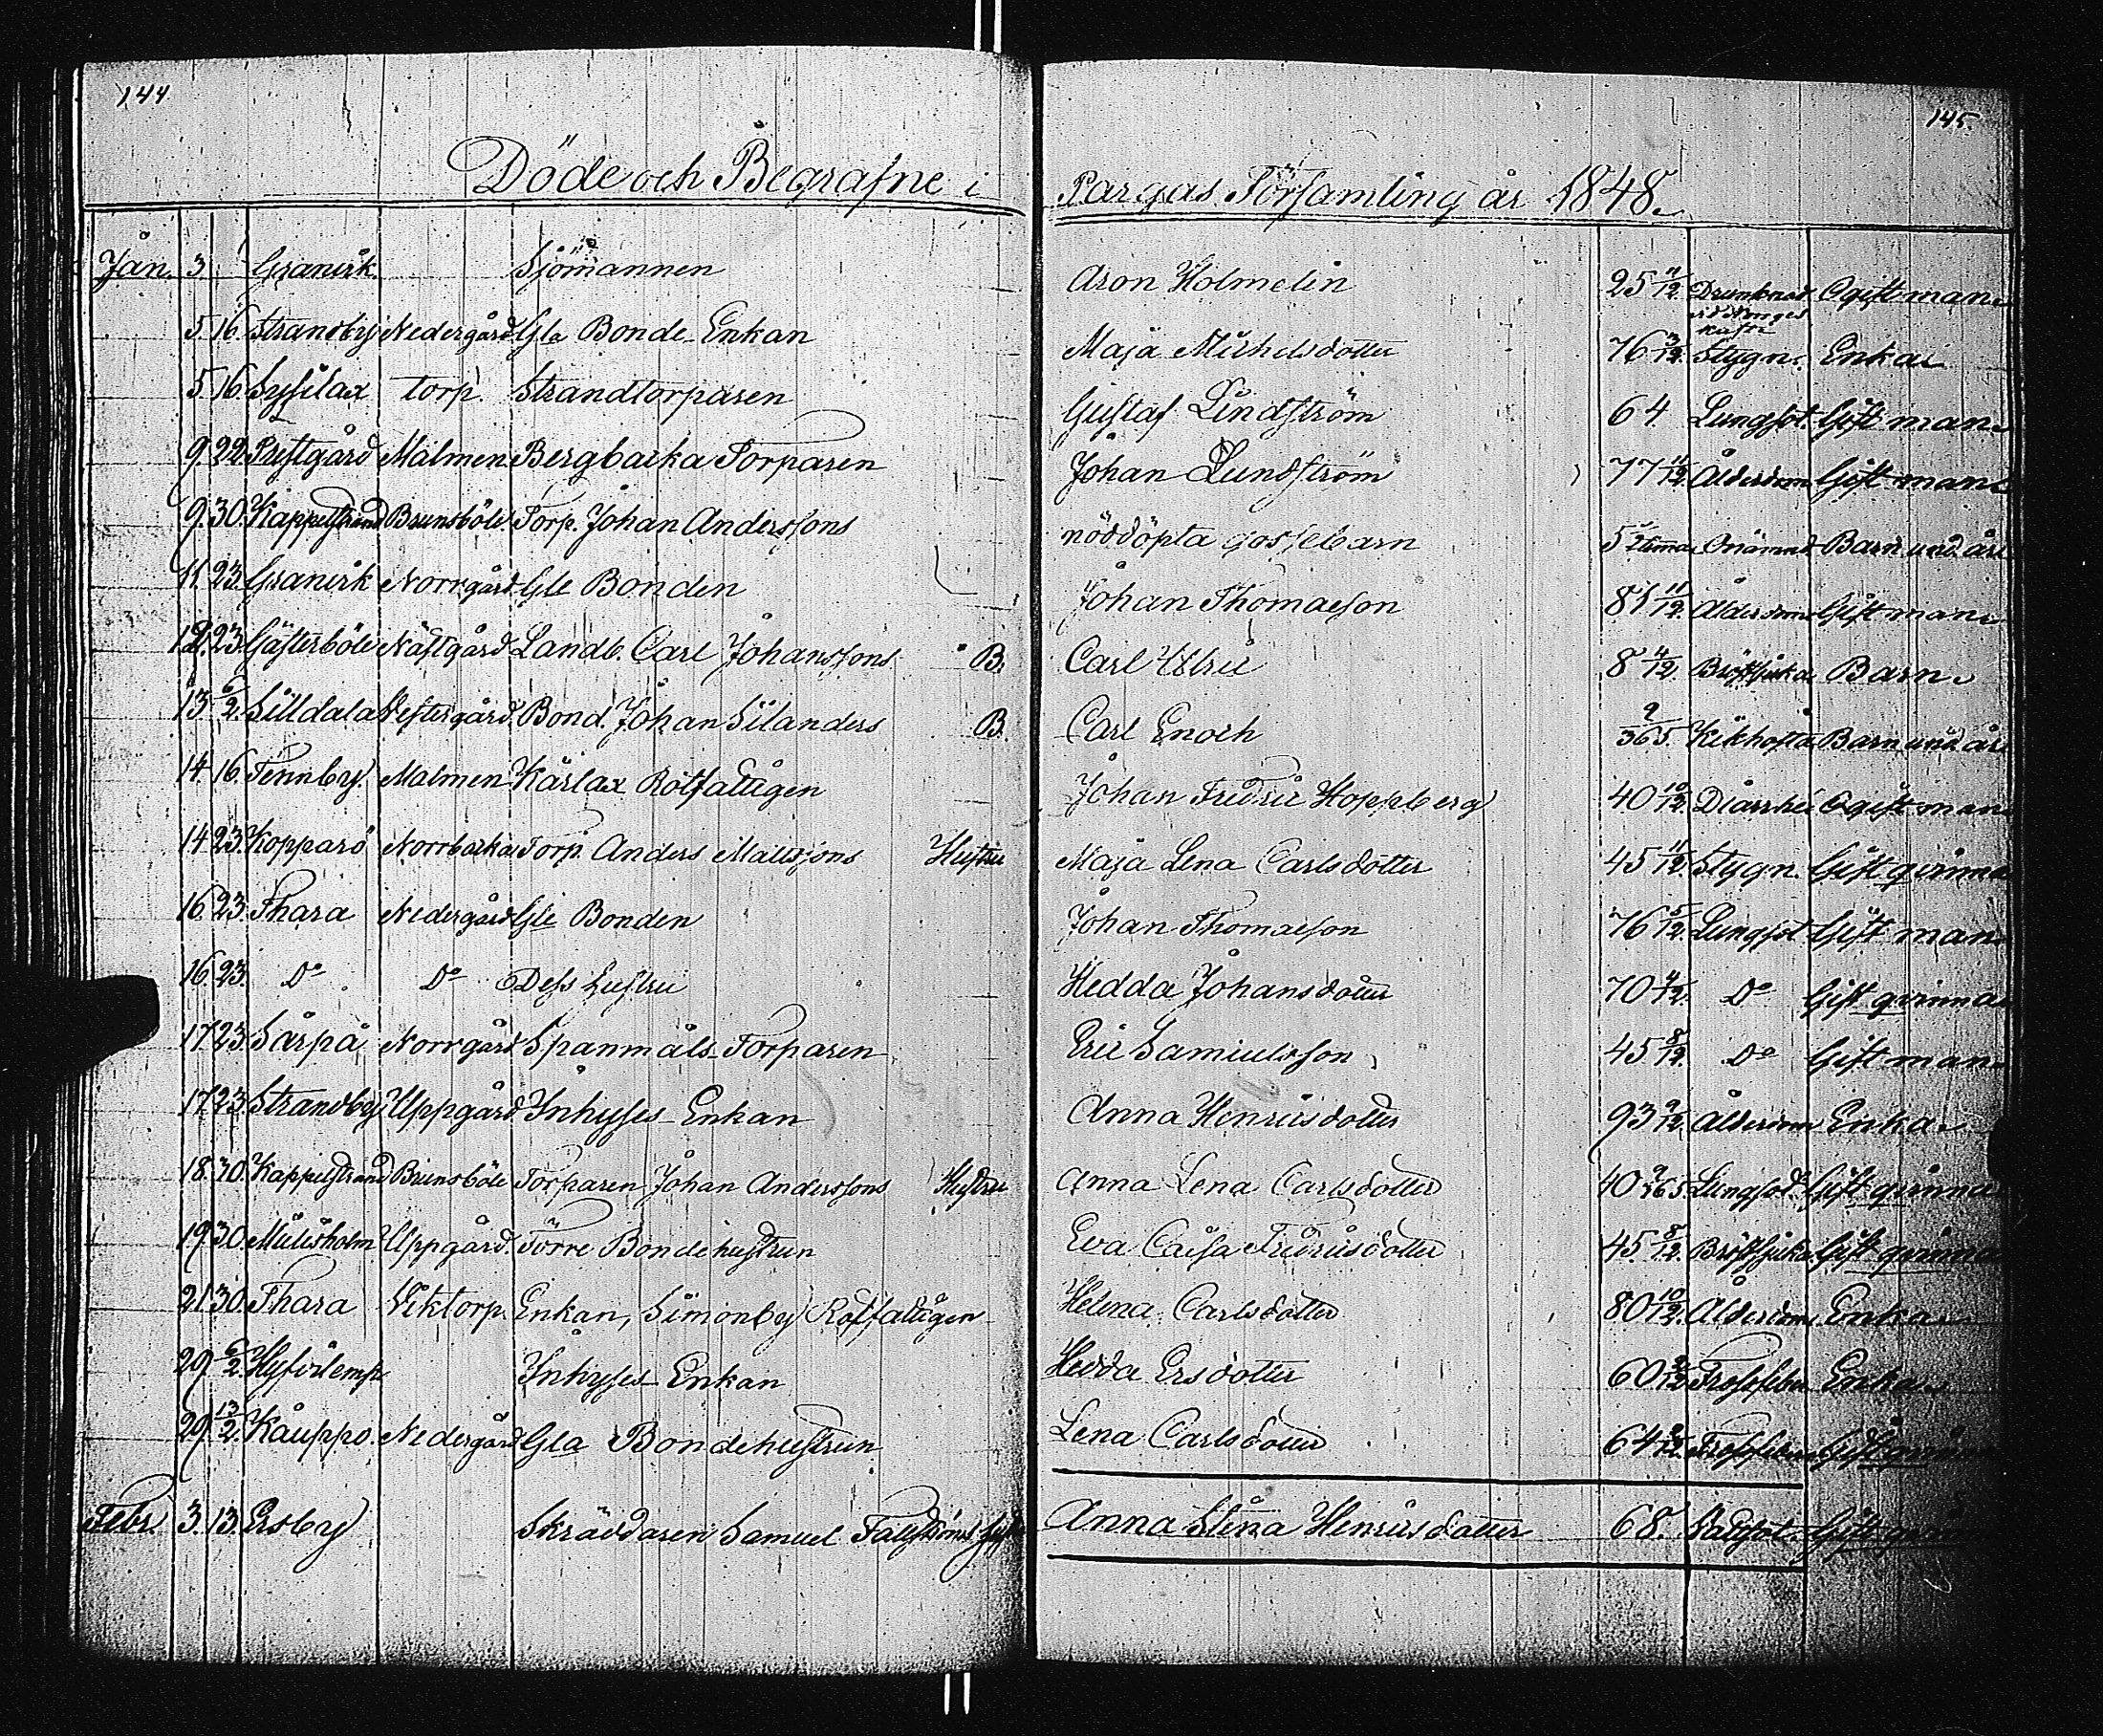 144
145.
Döde och Begrafne i Pargas Församling år 1848.
Jan. 3. Granvik. Sjömannen Aron Holmelin 25 11/12. Drunknad vid Norges Ogift man.
5. 16. Strandby Nedergård Gla Bonde-Enkan Maja Michelsdotter 76 3/12. Stygn. Enka
5. 16. Sysilax torp. Strandtorparen Gustaf Lindström 64. Lungsot. Gift man.
9. 22. Prestgård Malmen Bergbacka Torparen Johan Lundström 77 11/12. Ålderdom Gift man.
9. 30. Kappelstrand Brunsböle Torp. Johan Anderssons nöddöpta gossebarn 5 Onämnd Barn und. år
11. 23. Granvik Norrgård Gle Bonden Johan Thomasson 81 11/12. Ålderdom Gift man.
12. 23. Gästerböle Nästgård Landb. Carl Johanssons B. Carl Ulric 8 4/12. Bröstsjuka Barn.
13 6/2. Silldala Vestergård. Bond. Johan Silanders B. Carl Enoch 9/365. Kikhosta Barn und. år
14. 16. Tennby. Malmen Kärlax Rotfattigen Johan Fredric Hoppberg 40 10/12. Diarrhé Ogift man
14 23. Kopparö Norrbacka Torp. Anders Mattssons Hustru Maja Lena Carlsdotter 45 11/12. Stygn. Gift qvinna
16. 23. Thara Nedergård Gle Bonden Johan Thomasson 76 5/12. Lungsot Gift man.
16. 23. Do Do Dess hustru Hedda Johansdotter 70 4/12. Do Gift qvinna
17. 23. Sarpå Norrgård Spanmåls Torparen Eric Samuelsson 45 8/12. Do Gift man.
17. 23. Strandby Uppgård Inhyses-Enkan Anna Henricsdotter 93 9/12. Ålderdom Enka.
18. 30. Kappelstrand Brunsböle Torparen Johan Anderssons Hustru Anna Lena Carlsdotter 40 9/365. Lungsot. Gift qvinna
19. 30. Mielisholm Uppgård. Förre Bondehustrun Eva Caisa Fredricsdotter 45. 8/12. Bröstsjuka Gift qvinna
21. 30. Thara Viktorp. Enkan, Simonby Rotfattigen Helena Carlsdotter 80 10/12. Ålderdom. Enka.
29. 6/2. Hyfvilemp. Inhyses-Enkan Hedda Ersdotter 60 Enka.
29. 13/2. Kauppo. Nedergård Gla Bondehustrun Lena Carlsdotter 64 Gift qvinna
Febr. 3. 13. Ersby Skräddaren Samuel Anna Stina Henricsdotter 68. Vattsot. Gift